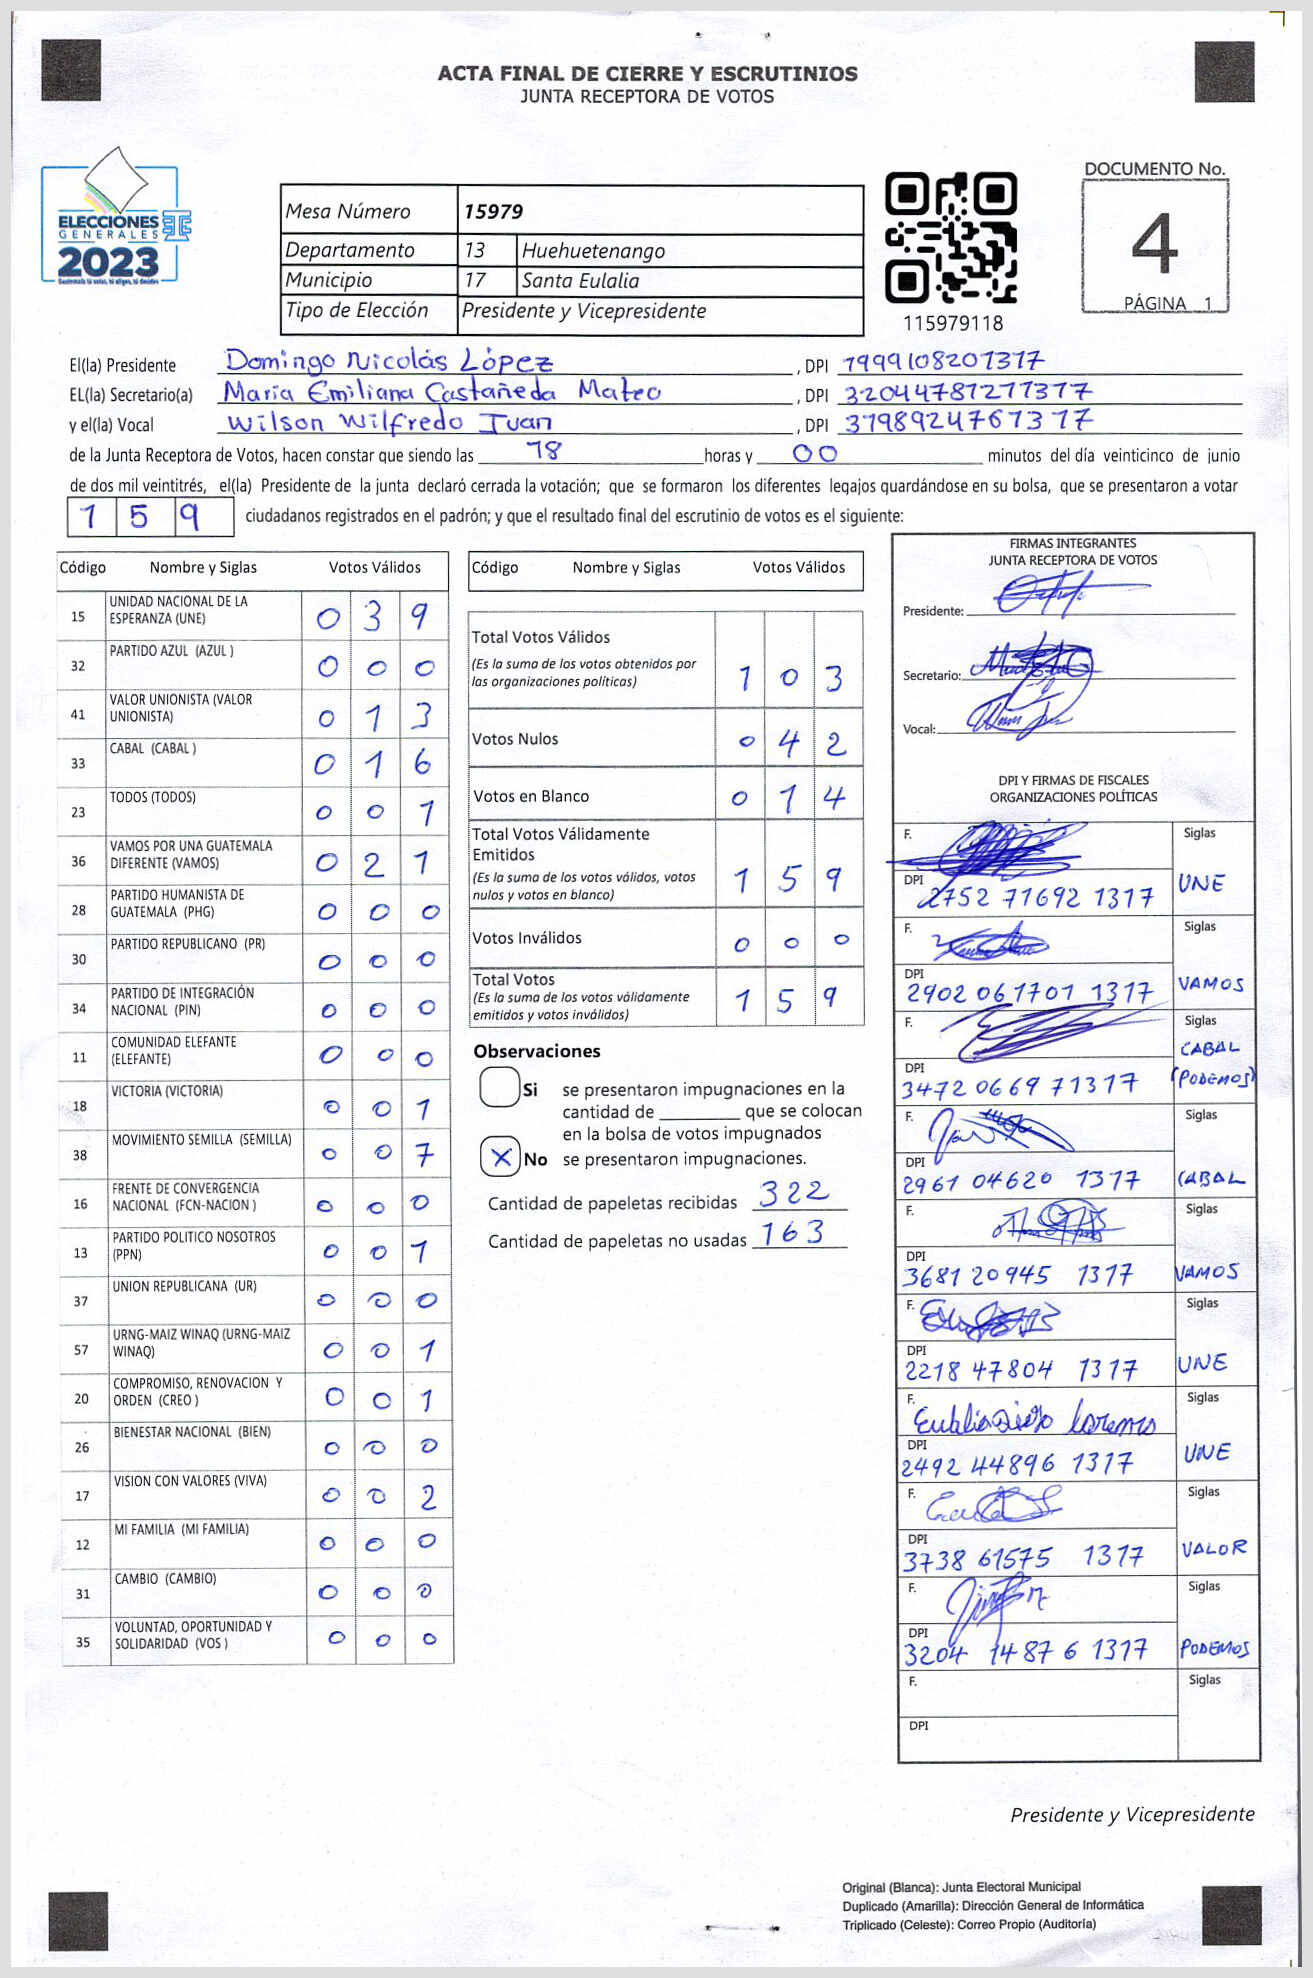 ACTA FINAL DE CIERRE Y ESCRUTINIOS
JUNTA RECEPTORA DE VOTOS
ELECCIONES
GENERALES
2023
Mesa Número 15979
Departamento 13 Huehuetenango
Municipio 17 Santa Eulalia
Tipo de Elección Presidente y Vicepresidente
115979118
DOCUMENTO No.
4
PÁGINA 1
El(la) Presidente Domingo Nicolás López, DPI 1999108201317
EL(la) Secretario(a) María Emiliana Castañeda Mateo, DPI 3204478127 1317
y el(la) Vocal Wilson Wilfredo Juan, DPI 3198924761317
de la Junta Receptora de Votos, hacen constar que siendo las 18 horas y 00 minutos del día veinticinco de junio
de dos mil veintitrés, el(la) Presidente de la junta declaró cerrada la votación; que se formaron los diferentes legajos guardándose en su bolsa, que se presentaron a votar
159 ciudadanos registrados en el padrón; y que el resultado final del escrutinio de votos es el siguiente:
Código Nombre y Siglas Votos Válidos
15 UNIDAD NACIONAL DE LA ESPERANZA (UNE) 039
32 PARTIDO AZUL (AZUL ) 000
41 VALOR UNIONISTA (VALOR UNIONISTA) 013
33 CABAL (CABAL ) 016
23 TODOS (TODOS) 001
36 VAMOS POR UNA GUATEMALA DIFERENTE (VAMOS) 021
28 PARTIDO HUMANISTA DE GUATEMALA (PHG) 000
30 PARTIDO REPUBLICANO (PR) 000
34 PARTIDO DE INTEGRACIÓN NACIONAL (PIN) 000
11 COMUNIDAD ELEFANTE (ELEFANTE) 000
18 VICTORIA (VICTORIA) 001
38 MOVIMIENTO SEMILLA (SEMILLA) 007
16 FRENTE DE CONVERGENCIA NACIONAL (FCN-NACION ) 000
13 PARTIDO POLITICO NOSOTROS (PPN) 001
37 UNION REPUBLICANA (UR) 000
57 URNG-MAIZ WINAQ (URNG-MAIZ WINAQ) 001
20 COMPROMISO, RENOVACION Y ORDEN (CREO ) 001
26 BIENESTAR NACIONAL (BIEN) 000
17 VISION CON VALORES (VIVA) 002
12 MI FAMILIA (MI FAMILIA) 000
31 CAMBIO (CAMBIO) 000
35 VOLUNTAD, OPORTUNIDAD Y SOLIDARIDAD (VOS ) 000
Código Nombre y Siglas Votos Válidos
Total Votos Válidos
(Es la suma de los votos obtenidos por
las organizaciones políticas) 103
Votos Nulos 042
Votos en Blanco 014
Total Votos Válidamente
Emitidos
(Es la suma de los votos válidos, votos
nulos y votos en blanco) 159
Votos Inválidos 000
Total Votos
(Es la suma de los votos válidamente
emitidos y votos inválidos) 159
Observaciones
Si se presentaron impugnaciones en la
cantidad de ________ que se colocan
en la bolsa de votos impugnados
X No se presentaron impugnaciones.
Cantidad de papeletas recibidas 322
Cantidad de papeletas no usadas 163
FIRMAS INTEGRANTES
JUNTA RECEPTORA DE VOTOS
Presidente:
Secretario:
Vocal:
DPI Y FIRMAS DE FISCALES
ORGANIZACIONES POLÍTICAS
F. Siglas
DPI 2752 71692 1317 UNE
F. Siglas
DPI 2902 061701 1317 VAMOS
F. Siglas
DPI 3472 0669 71317 CABAL (PODEMOS)
F. Siglas
DPI 2961 04620 1317 CABAL
F. Siglas
DPI 3681 20945 1317 VAMOS
F. Siglas
DPI 2218 47804 1317 UNE
F. Siglas
DPI 2492 44896 1317 UNE
F. Siglas
DPI 3738 61575 1317 VALOR
F. Siglas
DPI 3204 1487 6 1317 PODEMOS
F. Siglas
DPI
Presidente y Vicepresidente
Original (Blanca): Junta Electoral Municipal
Duplicado (Amarilla): Dirección General de Informática
Triplicado (Celeste): Correo Propio (Auditoría)